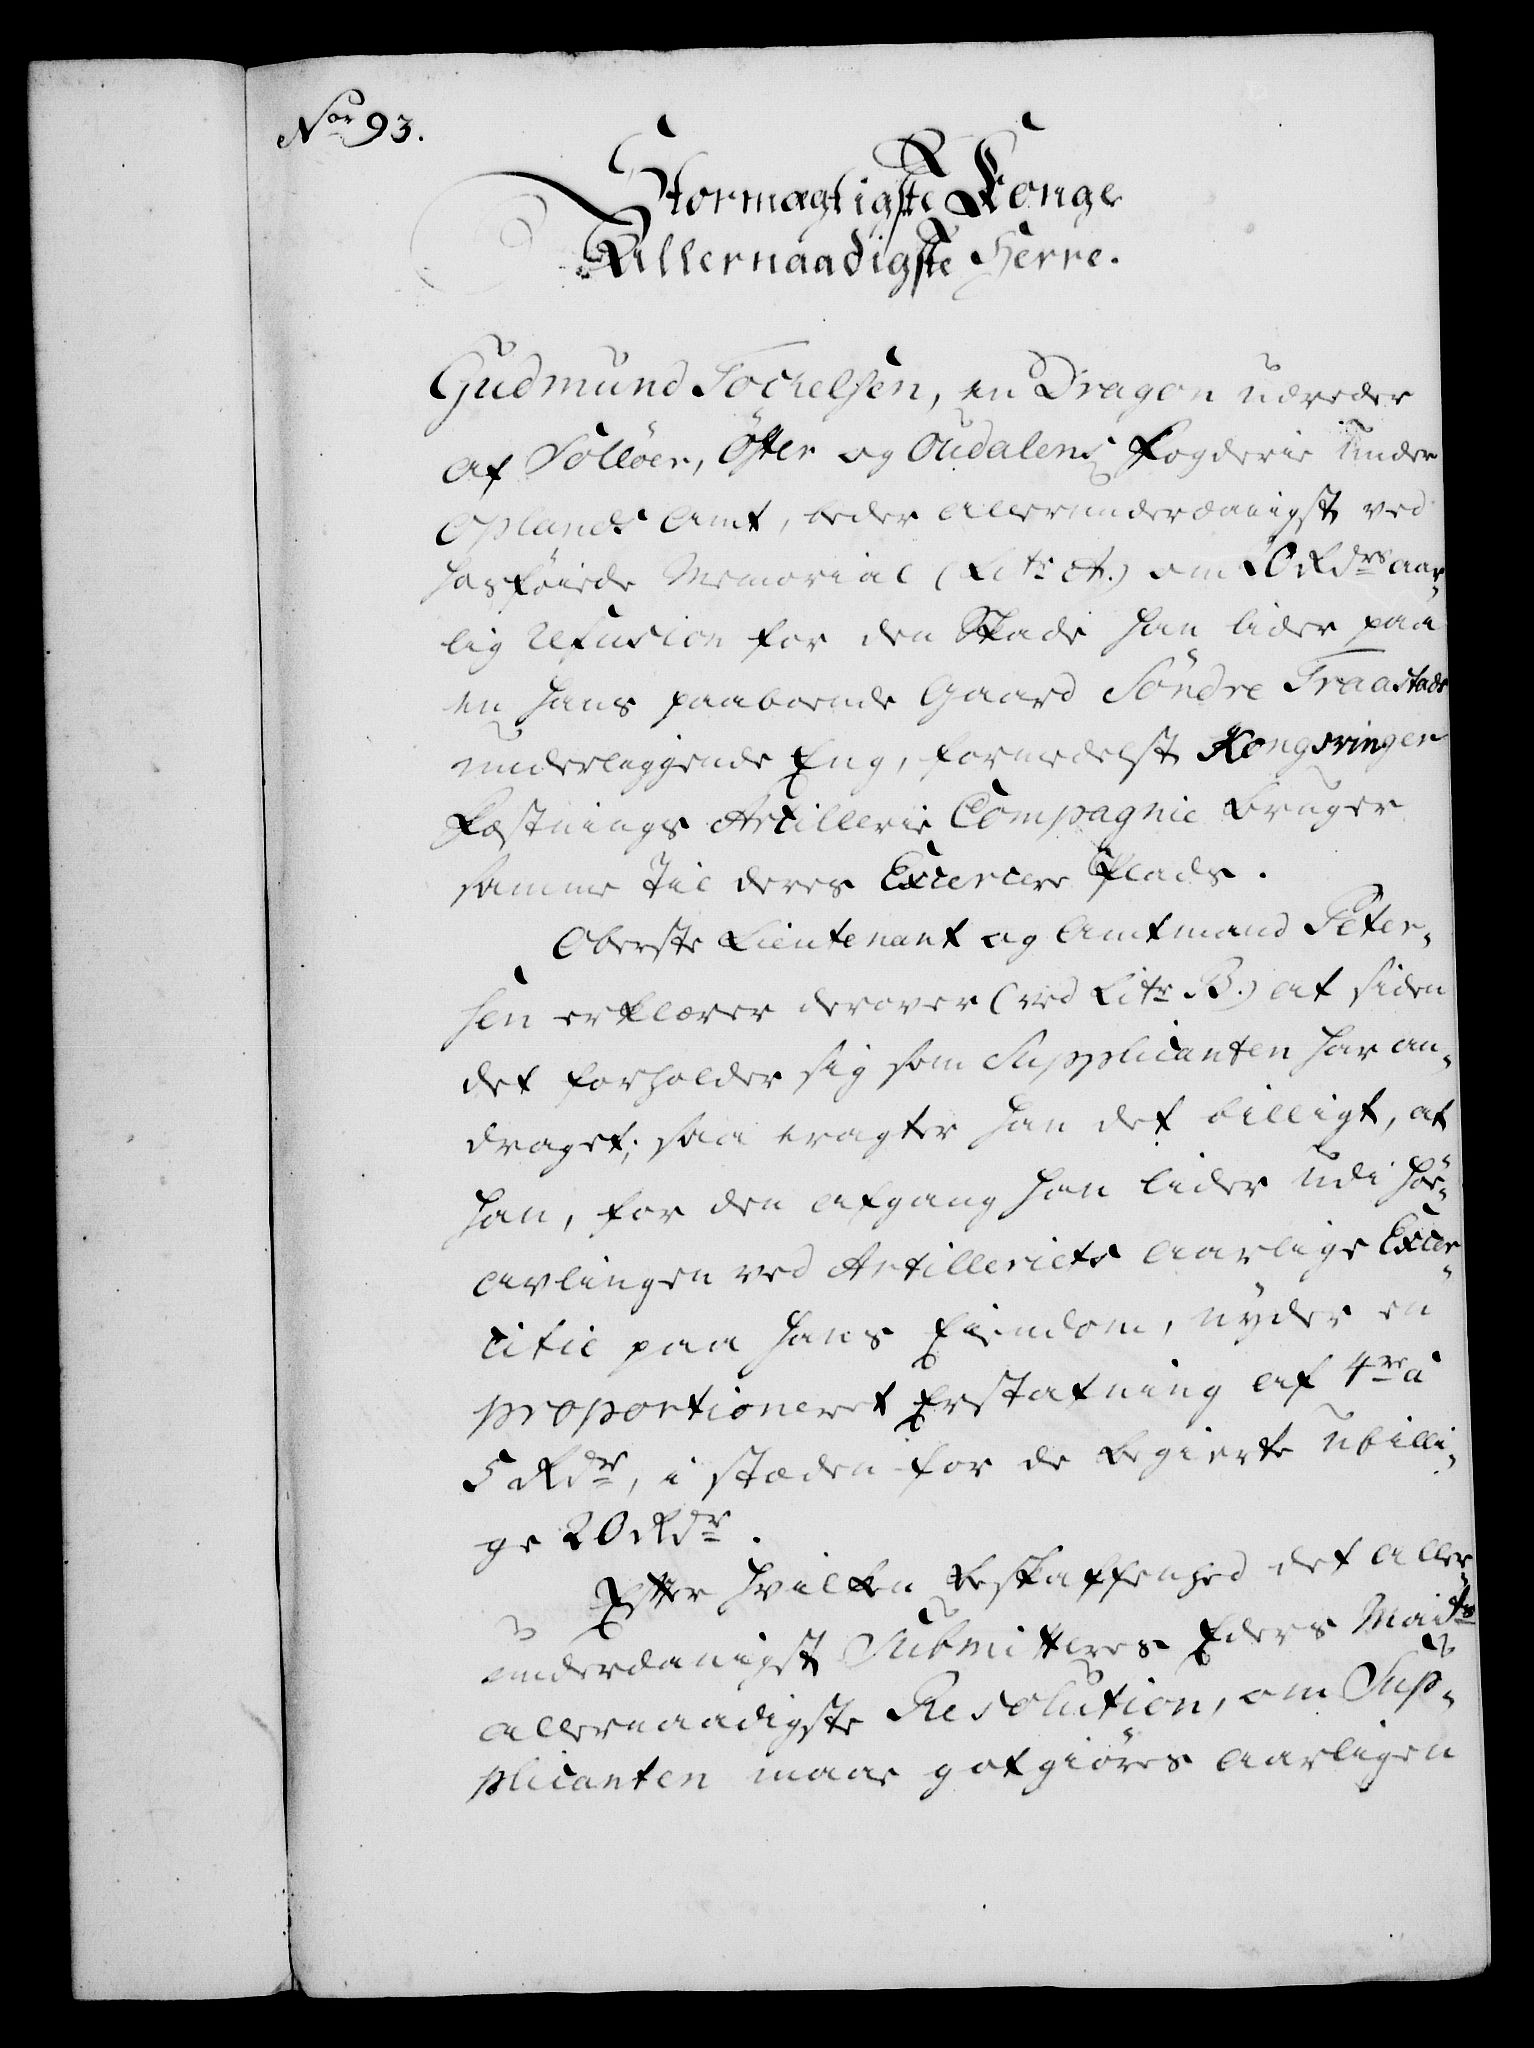 Nor 93.
Stormægtigste Konge
Allernaadigste Herre.
Gudmund Tockelsen, en Dragon udreder
af Solløer, Øster og Oudalens Fogderie under
Oplands Amt, beder allerunderdanigst ved
hosføiede Memorial (Litr A.) om 20 Rdrs aar-
lig Refusion for den Skade han lider paa
en hans paaboende Gaard Søndre Traastads
underliggende Eng, formedelst Kongsvinger
Fæstnings Artillerie Compagnie bruger
samme til deres Excercere Plads.
Oberste Lieutenant og Amtmand Peter-
sen erklærer derover (ved Litr B.) at siden
det forholder sig som Supplicanten har an-
draget; saa eragter han det billigt, at
han, for den afgang han lider udi Høe-
avlingen ved Artilleriets aarlige Excer-
citie paa hans Eiendom, nyder en
proportioneret Erstatning af 4re à
5 Rdr, i stæden for de begierte ubilli-
ge 20 Rdr.
Efter hvilken beskaffenhed det aller-
underdanigst Submitteres Eders Maits
allernaadigste Resolution, om Sup-
plicanten maae godtgiøres aarligen